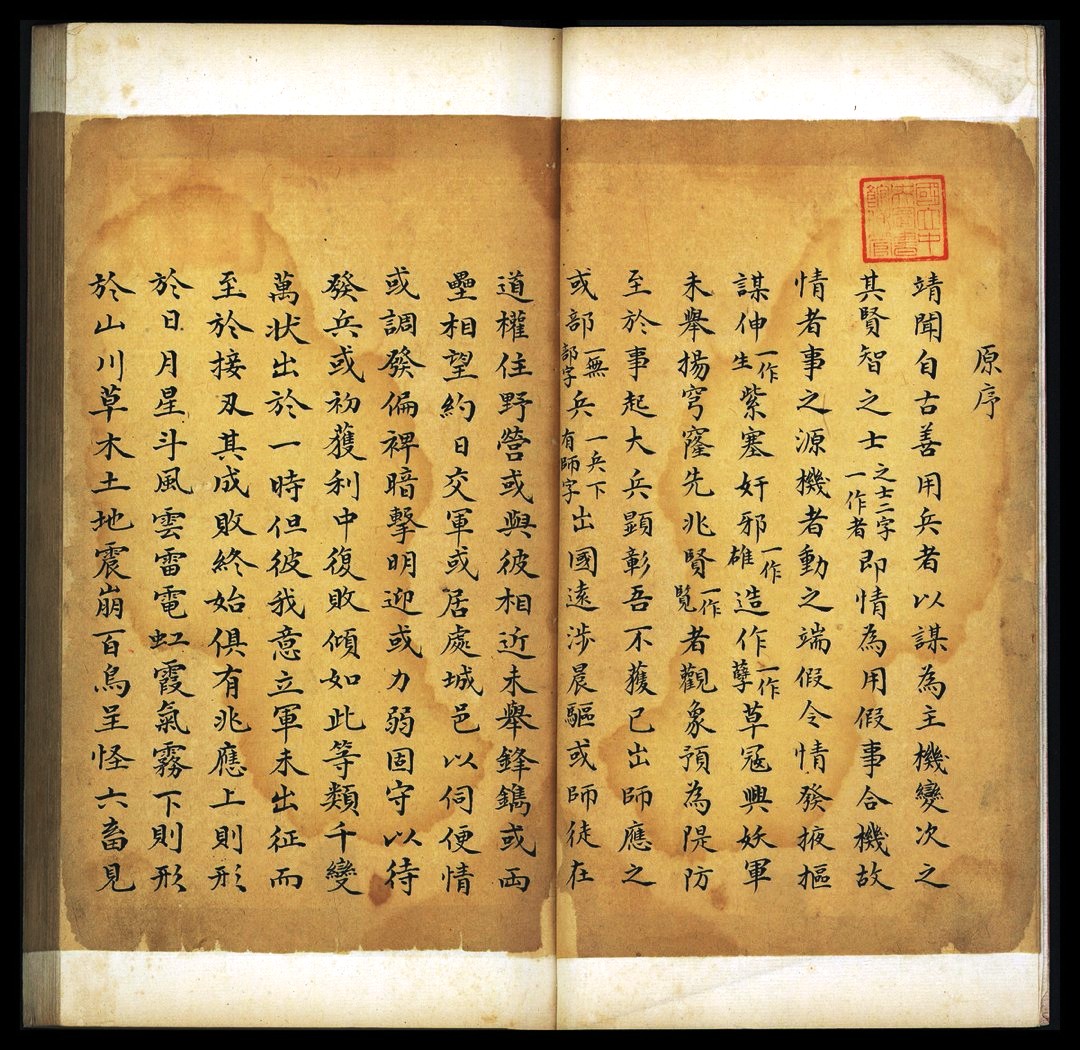 原序
靖聞自古善用兵者以謀為主機變次之
其賢智之士之士二字一作者即情為用假事合機故
情者事之源機者動之端假令情發掖摳
謀伸一作生紫塞奸邪一作雄造作一作孽草冦興妖軍
未舉揚穹窿先兆賢一作覧者觀象預為隄防
至於事起大兵顯彰吾不獲已出師應之
或部一無部字兵一兵下有師字出國遠涉晨驅或師徒在
道權住野營或與彼相近未舉鋒鐫或両
壘相望約日交軍或居處城邑以伺便情
或調發偏裨暗擊明迎或力弱固守以待
發兵或初獲利中復敗傾如此等類千變
萬狀出於一時但彼我意立軍未出征而
至於接刄其成敗終始俱有兆應上則形
於日月星斗風雲雷電虹霞氣霧下則形
於山川草木土地震崩百鳥呈怪六畜見
國立中央圖書館收藏